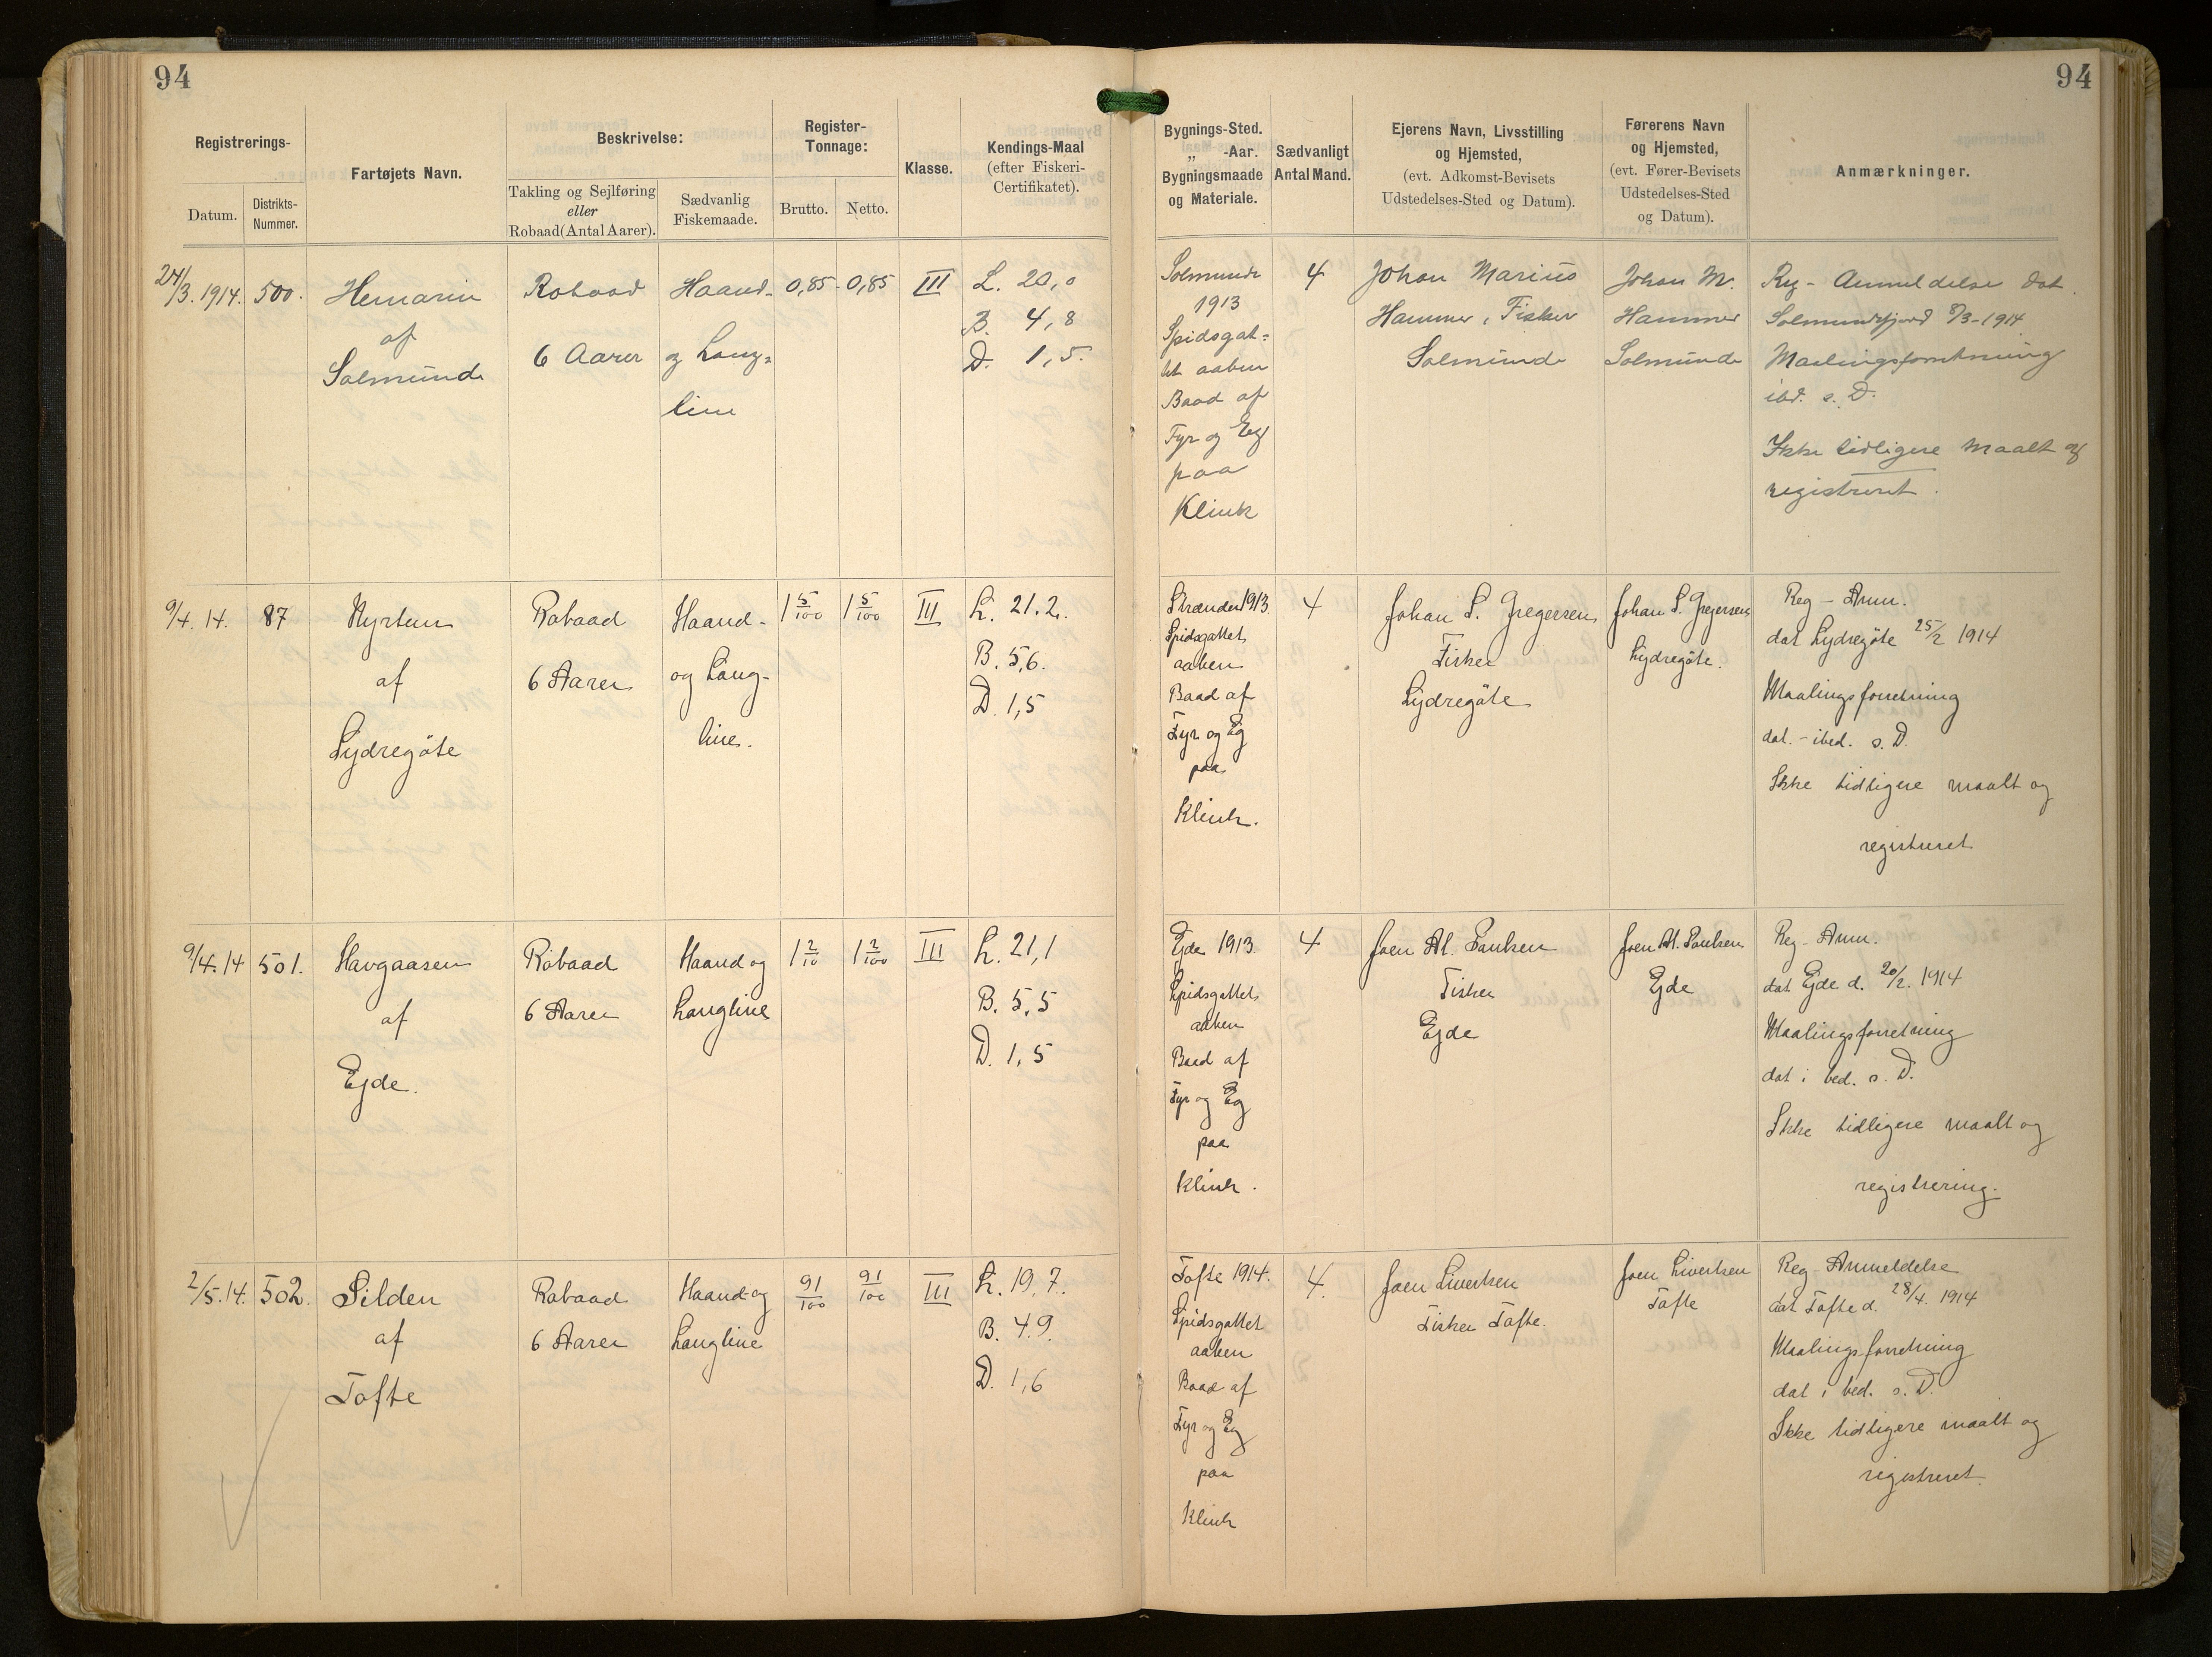 94
94
Registrerings-
Datum.
Distrikts-
Nummer.
Fartøjets Navn.
Beskrivelse:
Takling og Sejlføring
eller
Robaad (Antal Aarer).
Sædvanlig
Fiskemaade.
Register-
Tonnage:
Brutto.
Netto.
Klasse.
Kendings-Maal
(efter Fiskeri-
Certifikatet).
Bygnings-Sted.
„ -Aar.
Bygningsmaade
og Materiale.
Sædvanligt
Antal Mand.
Ejerens Navn, Livsstilling
og Hjemsted,
(evt. Adkomst-Bevisets
Udstedelses-Sted og Datum).
Førerens Navn
og Hjemsted,
(evt. Fører-Bevisets
Udstedelses-Sted
og Datum).
Anmærkninger.
24/3. 1914.
500.
af
Solmunde
Robaad
6 Aarer
Haand-
og Lang=
line
0,85
0,85
III
L. 20,0
B. 4,8
D. 1,5.
Solmunde
1913
Spidsgat=
tet aaben
Baad af
Fyr og Eg
paa
Klink
4
Johan Marius
Hammer, Fisker
Solmunde
Johan M.
Hammer
Solmunde
Reg - Anmeldelse dat.
Solmundefjord 8/3-1914
Maalingsforretning
ibd. s. D.
Ikke tidligere maalt og
registreret.
9/4. 14.
87
af
Lydregöte
Robaad
6 Aarer
Haand-
og Lang-
line.
1 5/100
1 5/100
III
L. 21.2.
B. 5,6.
D. 1,5
Strænder 1913.
Spidsgattet
aaben
Baad af
Fyr og Eg
paa
Klink.
4
Johan S. Gregersen
Fisker
Lydregöte
Johan S. Gregersen
Lydregöte.
Reg - Anm.
dat Lydregöte 25/2 1914
Maalingsforretning
dat. - ibed. s. D.
Ikke tidligere maalt og
registreret
9/4. 14
501.
Havgaasen
af
Ejde.
Robaad
6 Aarer
Haand og
Langline
1 2/10
1 2/100
III
L. 21,1
B. 5,5
D. 1,5
Ejde 1913.
Spidsgattet
aaben
Baad af
Fyr og Eg
paa
Klink.
4
Joen M. Poulsen
Fisker
Ejde
Joen M. Poulsen
Ejde
Reg - Anm.
dat Ejde d. 20/2. 1914
Maalingsforretning
dat i bed. s. D.
Ikke tidligere maalt og
registrering.
2/5. 14.
502.
Silden
af
Tofte
Robaad
6 Aarer
Haand og
Langline
91/100
91/100
III
L. 19,7.
B. 4.9.
D. 1,6
Tofte 1914.
Spidsgattet
aaben
Baad af
Fyr og Eg
paa
Klink
4.
Joen Sivertsen
Fisker Tofte.
Joen Sivertsen
Tofte
Reg - Anmeldelse
dat Tofte d. 28/4. 1914
Maalingsforretning
dat i bed. s. D.
Ikke tidligere maalt og
registreret.